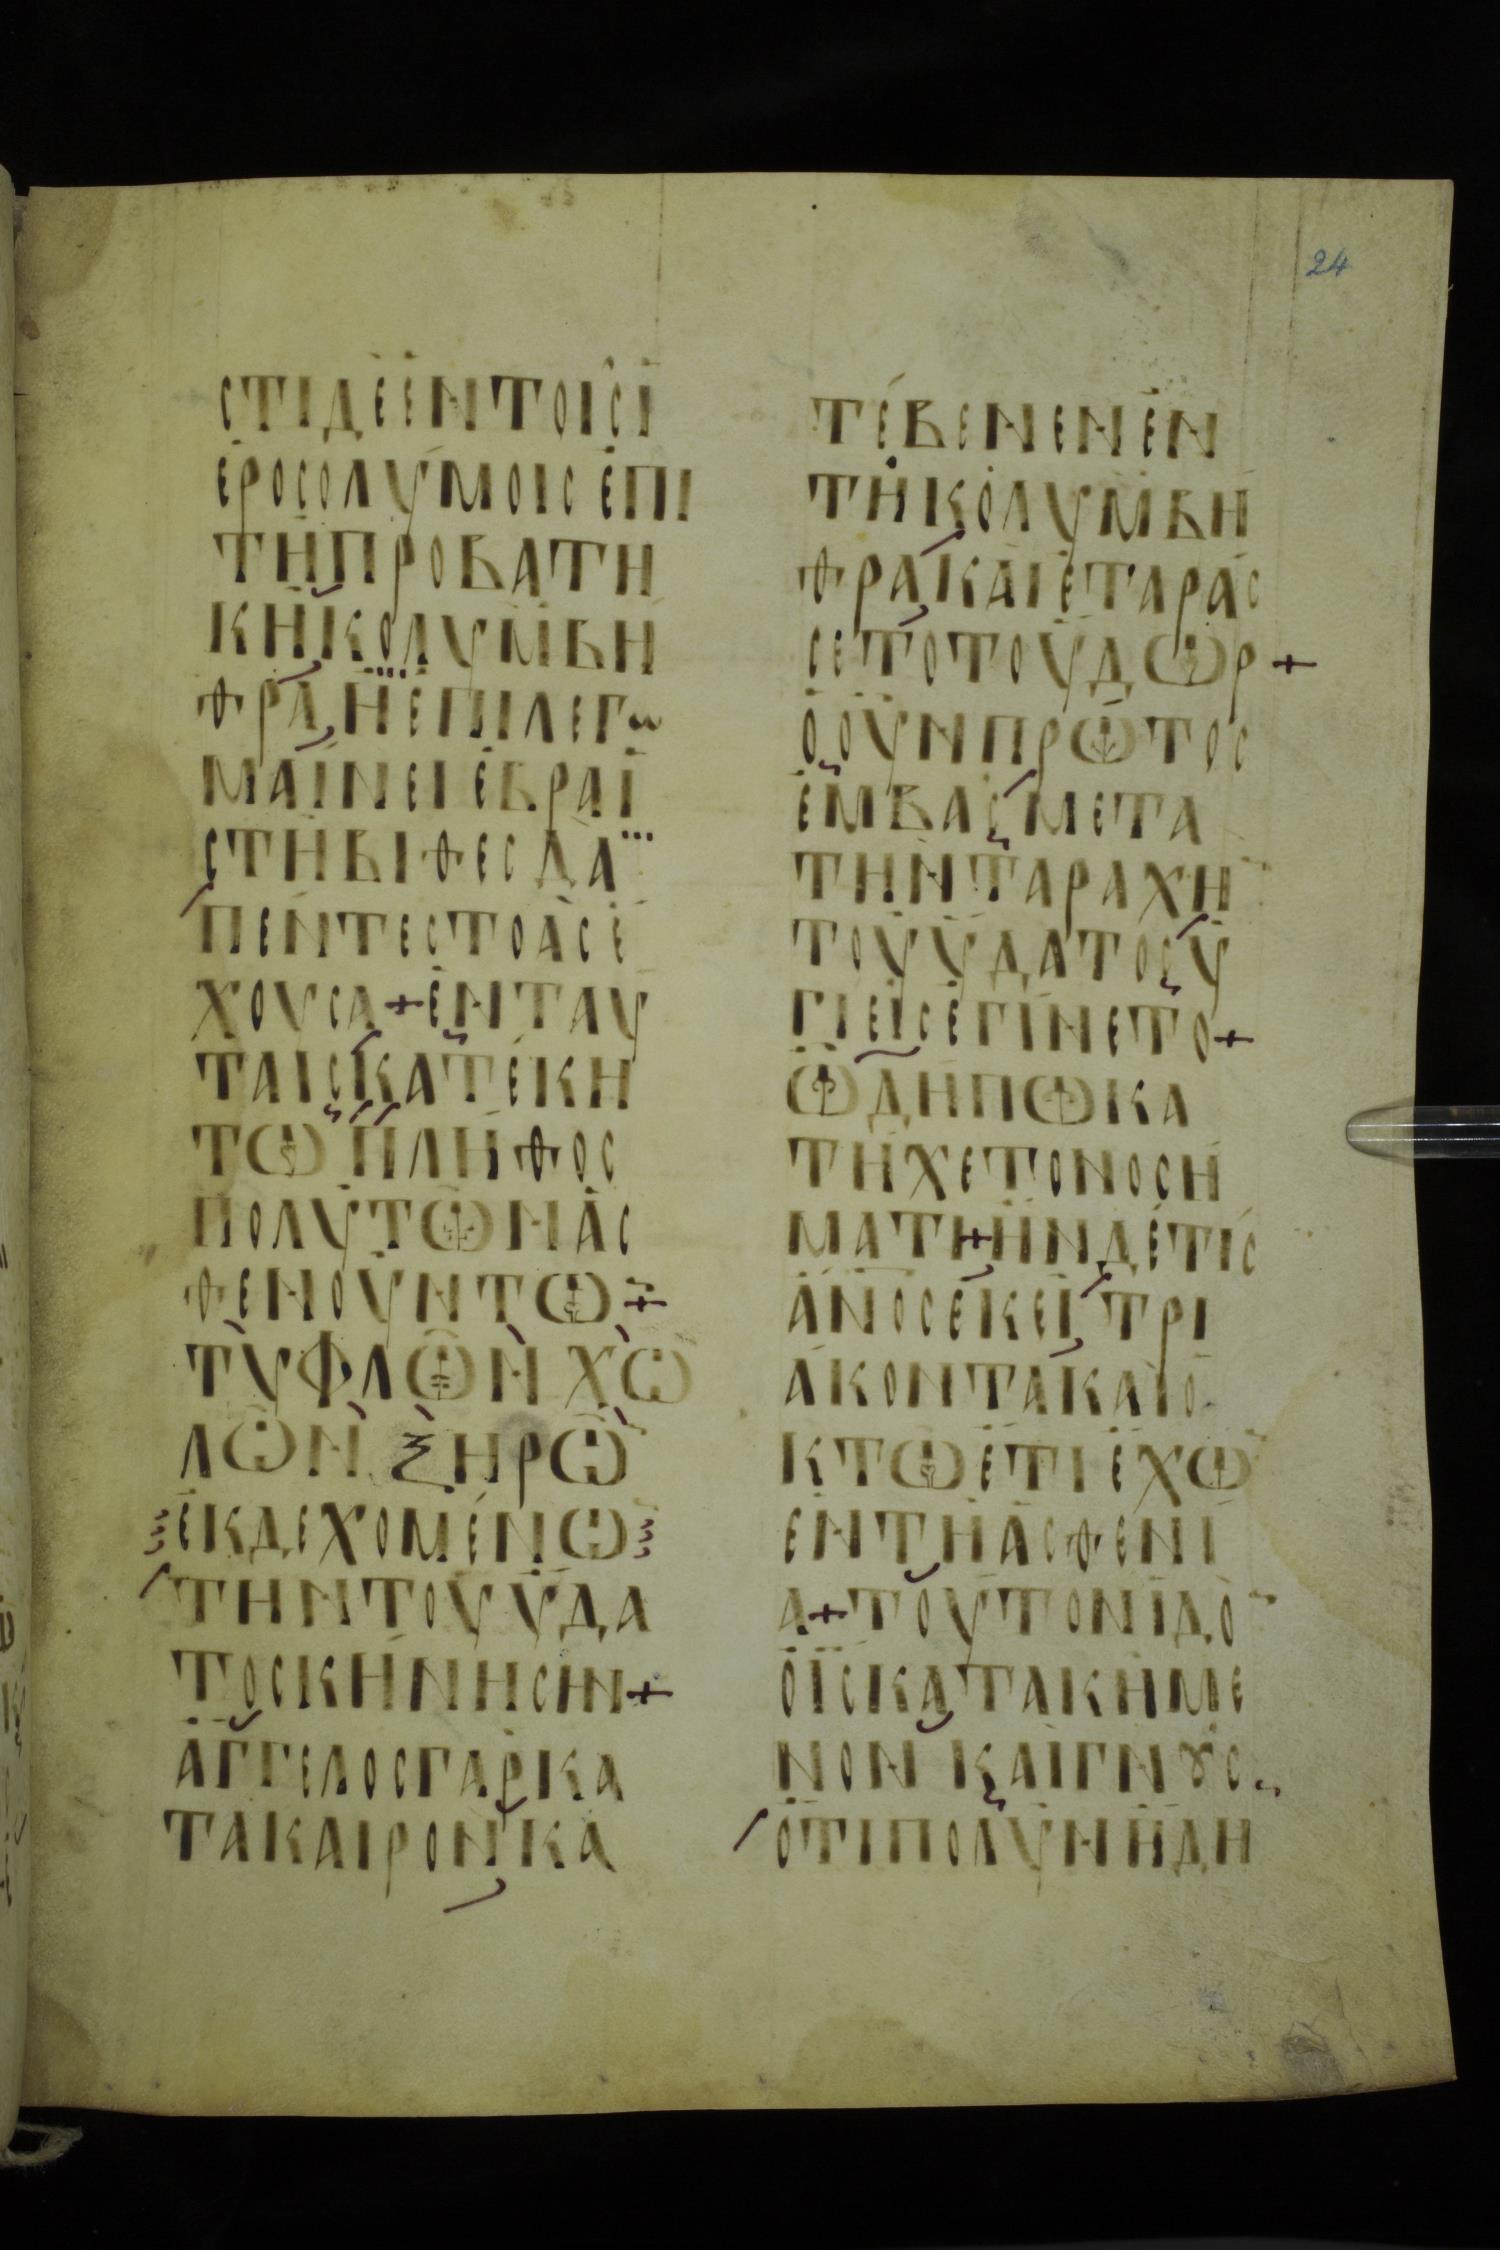 24
ΣΤΙΔΕΕΝΤΟΙΣΙ
ΕΡΟΣΟΛΥΜΟΙΣ ΕΠΙ
ΤΗΠΡΟΒΑΤΗ
ΚΗΚΟΛΥΜΒΗ
ΘΡΑ ΗΕΠΙΛΕΓω
ΜΑΙΝΕΙ ΕΒΡΑΙ
ΣΤΗΒΙΘΕΣΔΑ
ΠΕΝΤΕΣΤΟΑΣΕ
ΧΟΥΣΑ+ΕΝΤΑΥ
ΤΑΙΣΚΑΤΕΚΗ
ΤΩ ΠΛΗΘΟΣ
ΠΟΛΥΤΩΝΑΣ
ΘΕΝΟΥΝΤΩ+
ΤΥΦΛΩΝ ΧΩ
ΛΩΝ ΞΗΡΩ
ΕΚΔΕΧΟΜΕΝΩ
ΤΗΝΤΟΥΥΔΑ
ΤΟΣΚΗΝΗΣΗΝ+
ΑΓΓΕΛΟΣΓΑΡΚΑ
ΤΑΚΑΙΡΟΝΚΑ
ΤΕΒΕΝΕΝΕΝ
ΤΗΚΟΛΥΜΒΗ
ΘΡΑ ΚΑΙΕΤΑΡΑΣ
ΣΕΤΟΤΟΥΔΩΡ+
ΟΟΥΝΠΡΩΤΟΣ
ΕΜΒΑΣ ΜΕΤΑ
ΤΗΝΤΑΡΑΧΗ
ΤΟΥΥΔΑΤΟΣΥ
ΓΙΕΙΣΕΓΙΝΕΤΟ+
ΩΔΗΠΩΚΑ
ΤΗΧΕΤΟΝΟΣΗ
ΜΑΤΗ+ΗΝΔΕΤΙΣ
ΑΝΟΣΕΚΕΙ ΤΡΙ
ΑΚΟΝΤΑΚΑΙΟ
ΚΤΩΕΤΙΕΧΩ
ΕΝΤΗΑΣΘΕΝΙ
Α+ΤΟΥΤΟΝΙΔΟ
ΟΙΣΚΑΤΑΚΗΜΕ
ΝΟΝ ΚΑΙΓΝȣΣ
ΟΤΙΠΟΛΥΝΗΔΗ